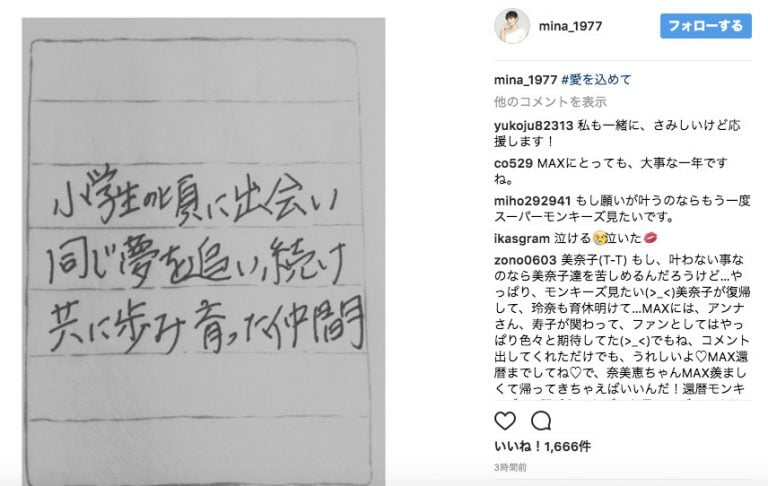 小学生の頃に出会い
同じ夢を追い、続け
共に歩み育った仲間
mina_1977
フォローする
mina_1977 #愛を込めて
他のコメントを表示
yukoju82313 私も一緒に、さみしいけど応
援します！
co529 MAXにとっても、大事な一年です
ね。
miho292941 もし願いが叶うのならもう一度
スーパーモンキーズ見たいです。
ikasgram 泣ける😢泣いた💋
zono0603 美奈子(T-T) もし、叶わない事な
のなら美奈子達を苦しめるんだろうけど…や
っぱり、モンキーズ見たい(>_<)美奈子が復帰
して、玲奈も育休明けて…MAXには、アンナ
さん、寿子が関わって、ファンとしてはやっ
ぱり色々と期待してた(>_<)でもね、コメント
出してくれただけでも、うれしいよ♡MAX還
暦までしてね♡で、奈美恵ちゃんMAX羨まし
くて帰ってきちゃえばいいんだ！還暦モンキ
いいね！1,666件
3時間前